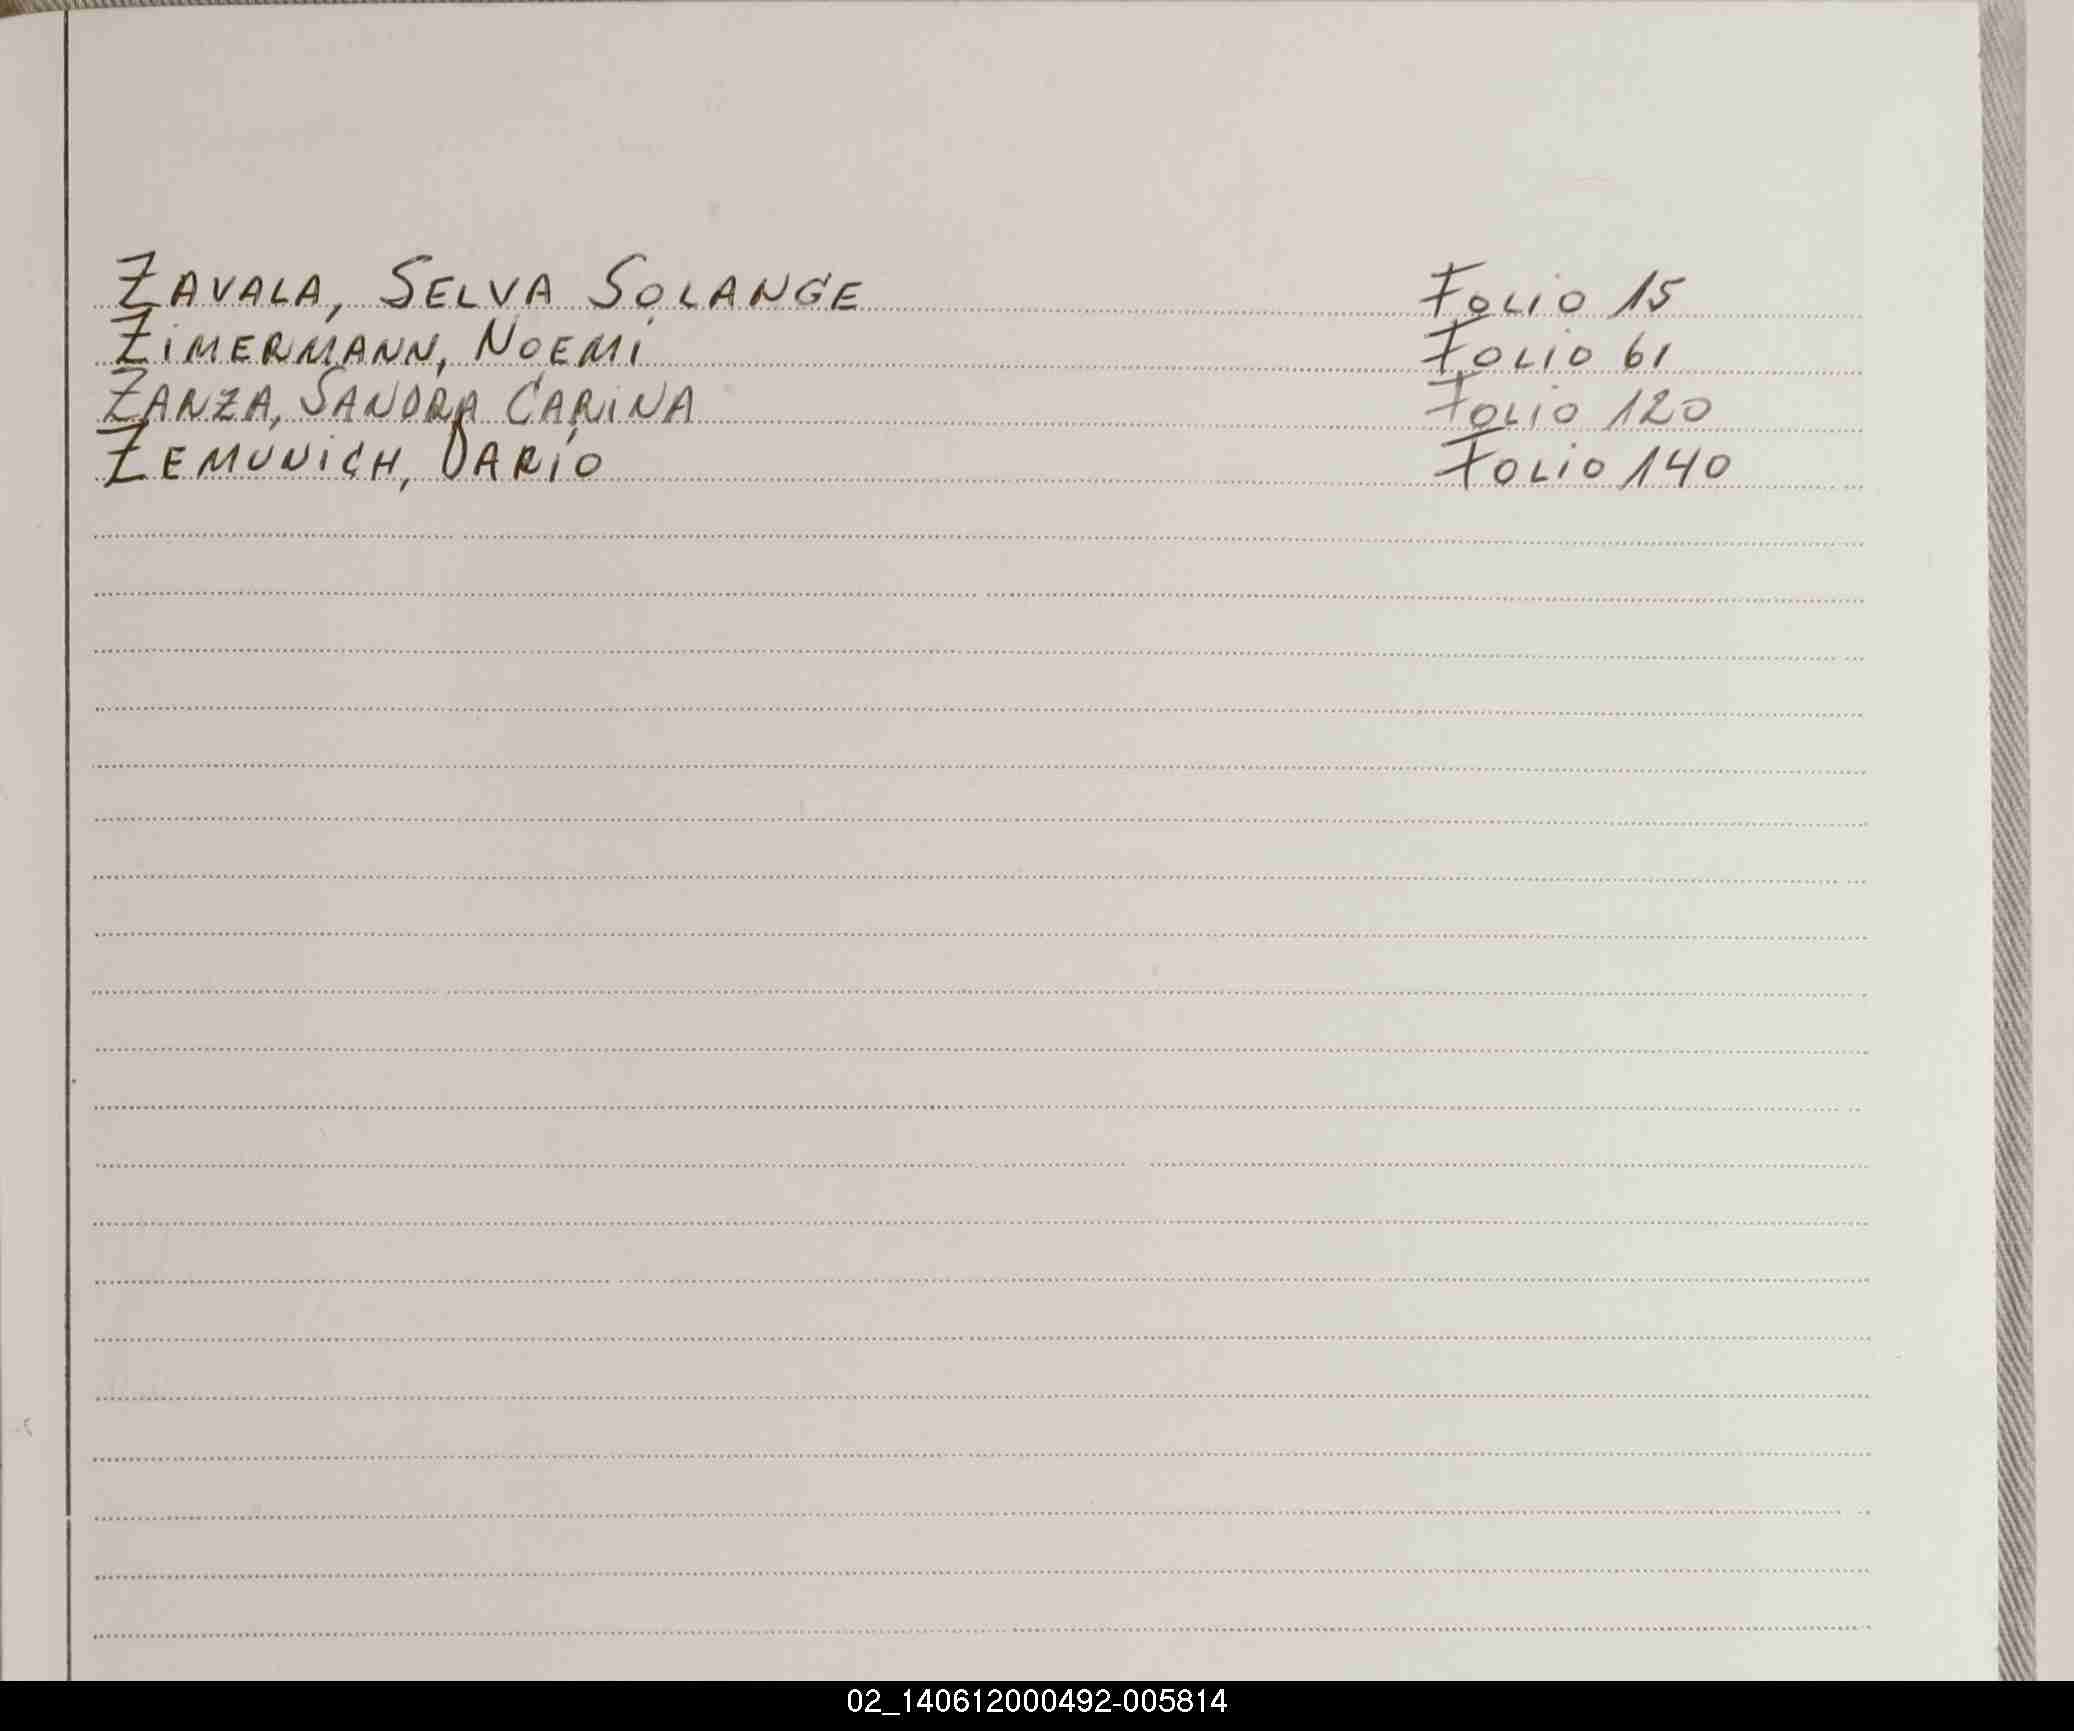 ZAVALA, SELVA SOLANGE Folio 15
ZiMERMANN, NOEMi Folio 61
ZANZA, SANDRA CARiNA Folio 120
ZEMUNiCH, DARíO Folio 140
02_140612000492-005814